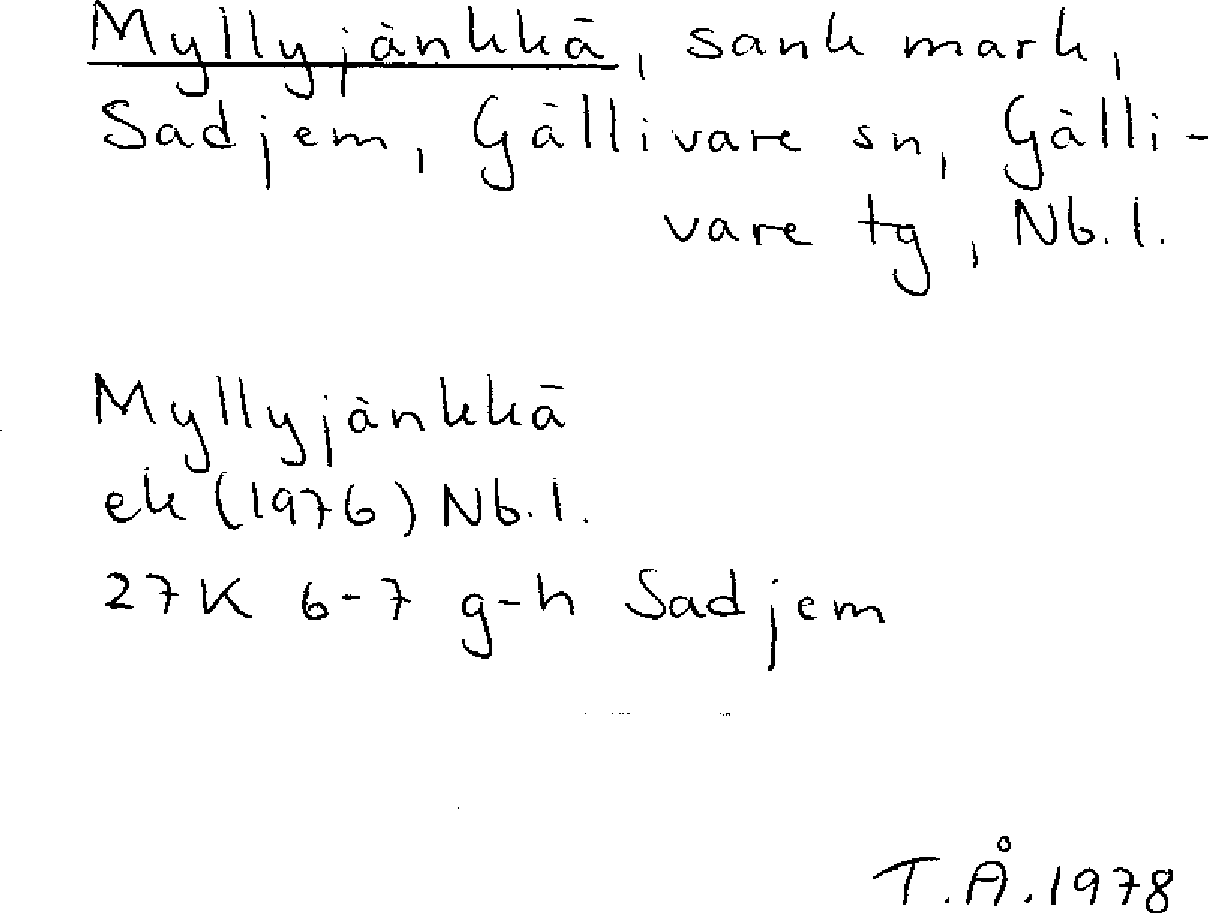 Myllyjänkkä, sank mark,
Sadjem, Gällivare sn, Gälli-
vare tg, Nb.l.
Myllyjänkkä
ek (1976) Nb.l.
27K 6-7 g-h Sadjem
T.Å.1978